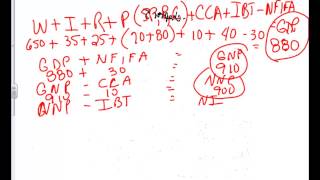 W + I + R + P ( ) + CCA + IBT - NFIFA = GDP
650 + 35 + 25 + (70+80) + 10 + 40 - 30 = 880
GDP + NFIFA = GNP
880 + 30 910
GNP - CCA = NNP
910 - 10 900
NNP - IBT = NI